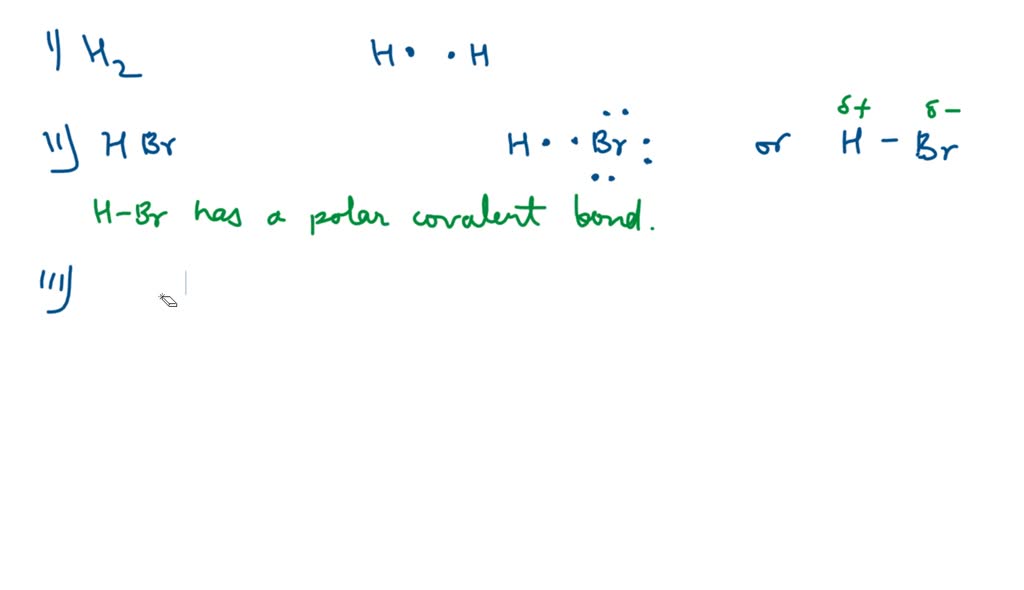 I) H2 H• •H
II) HBr H• •Br: or H - Br
δ+ δ-
H-Br has a polar covalent bond.
III)